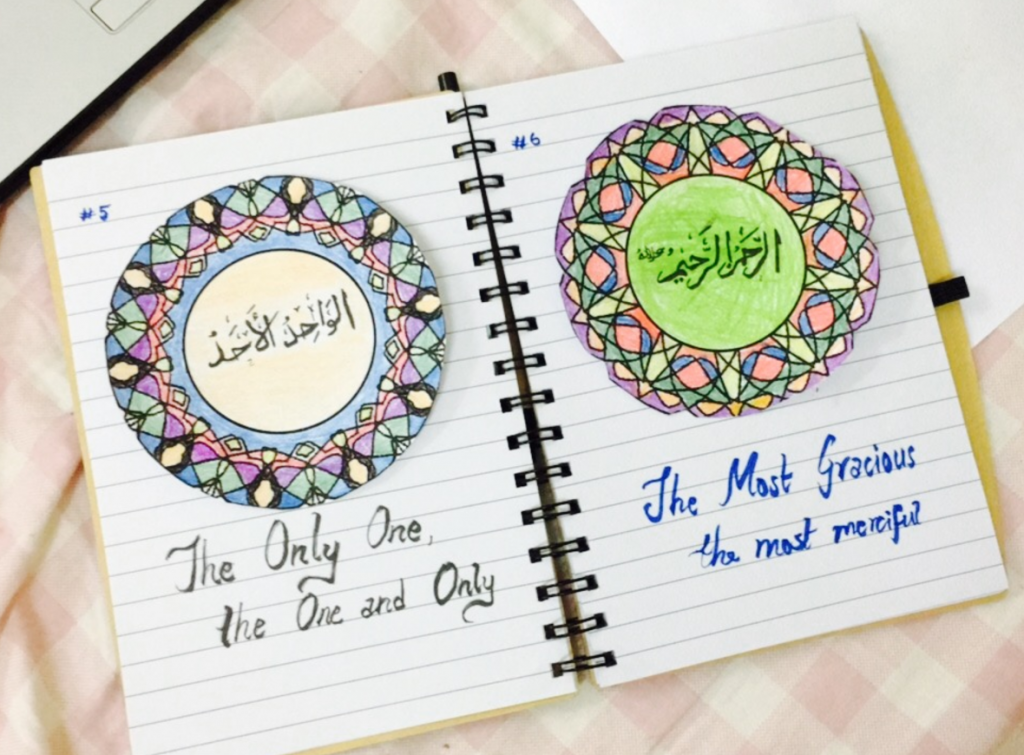 #5
الوَاحِدُ الأَحَدُ
The Only One,
the One and Only
#6
الرَّحْمٰنُ الرَّحِيمُ
The Most Gracious
the most merciful